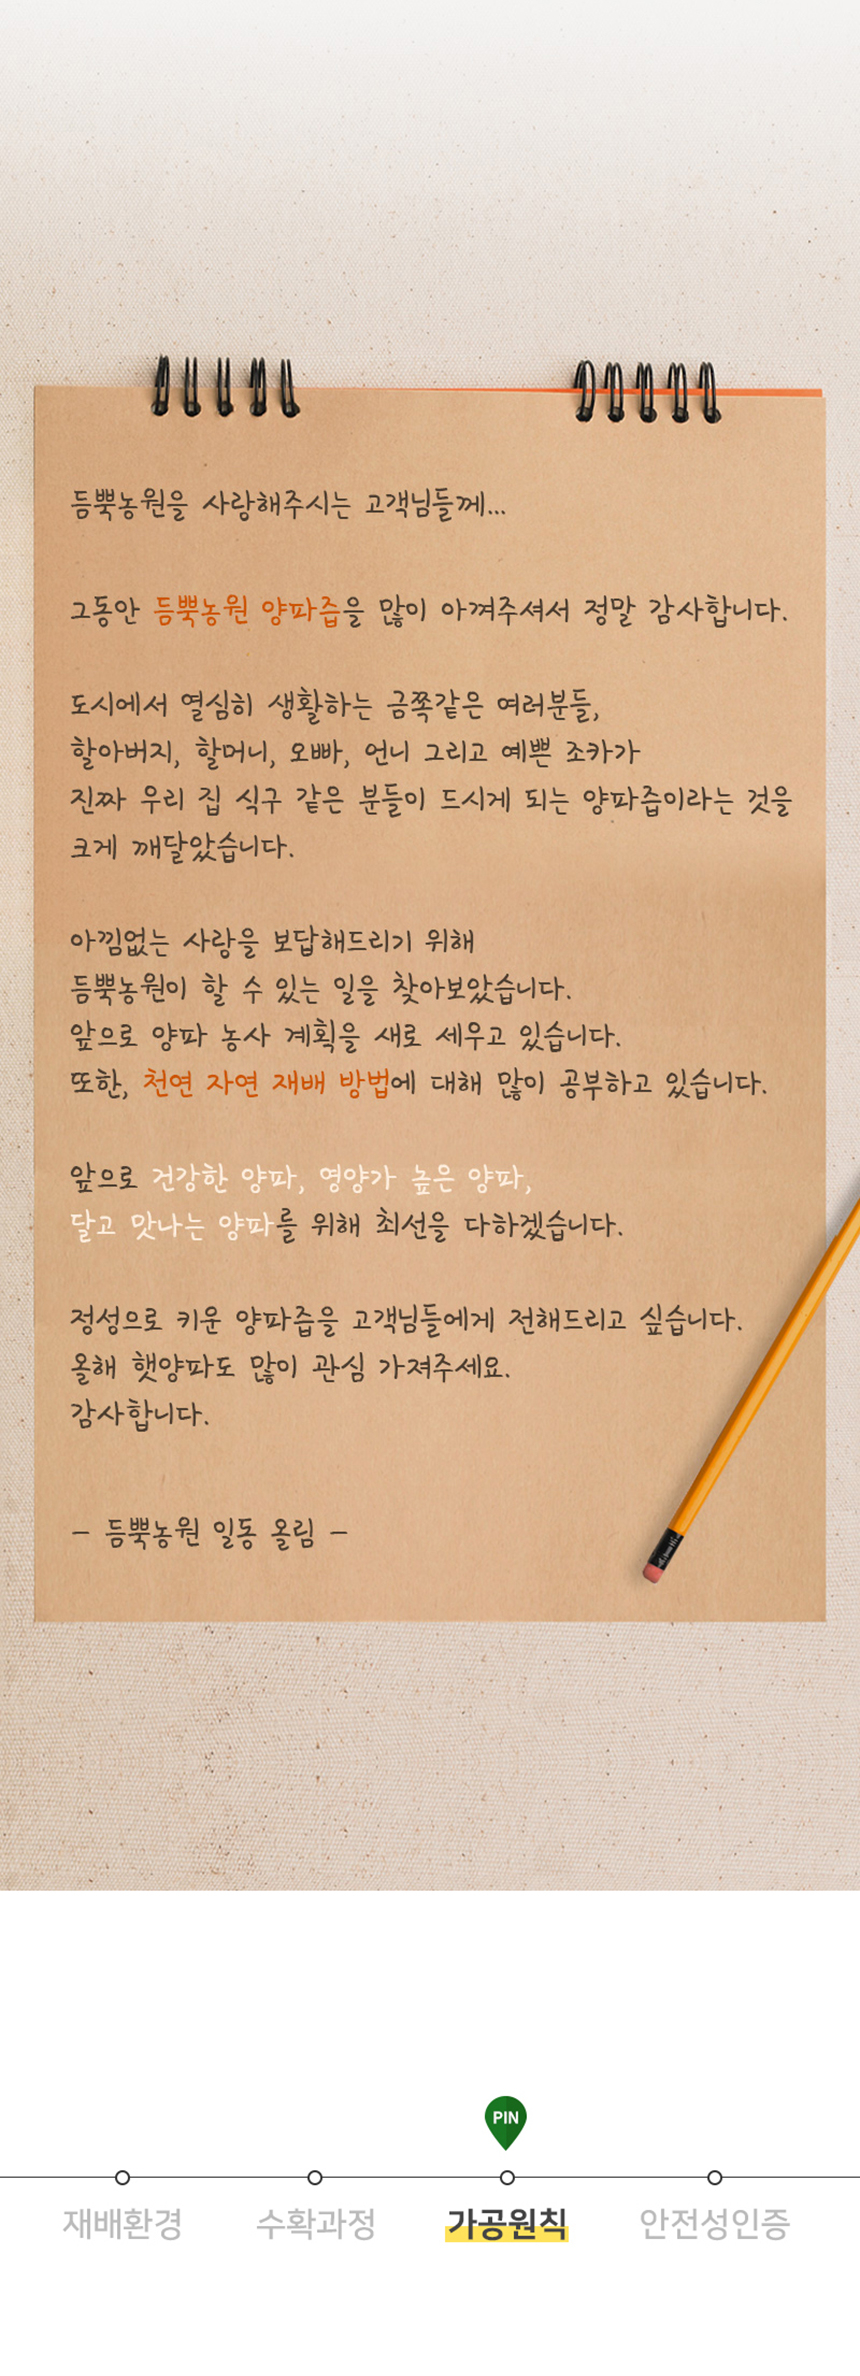 듬뿍농원을 사랑해주시는 고객님들께...
그동안 듬뿍농원 양파즙을 많이 아껴주셔서 정말 감사합니다.
도시에서 열심히 생활하는 금쪽같은 여러분들,
할아버지, 할머니, 오빠, 언니 그리고 예쁜 조카가
진짜 우리 집 식구 같은 분들이 드시게 되는 양파즙이라는 것을
크게 깨달았습니다.
아낌없는 사랑을 보답해드리기 위해
듬뿍농원이 할 수 있는 일을 찾아보았습니다.
앞으로 양파 농사 계획을 새로 세우고 있습니다.
또한, 천연 자연 재배 방법에 대해 많이 공부하고 있습니다.
앞으로 건강한 양파, 영양가 높은 양파,
달고 맛나는 양파를 위해 최선을 다하겠습니다.
정성으로 키운 양파즙을 고객님들에게 전해드리고 싶습니다.
올해 햇양파도 많이 관심 가져주세요.
감사합니다.
- 듬뿍농원 일동 올림 -
PIN
재배환경 수확과정 가공원칙 안전성인증